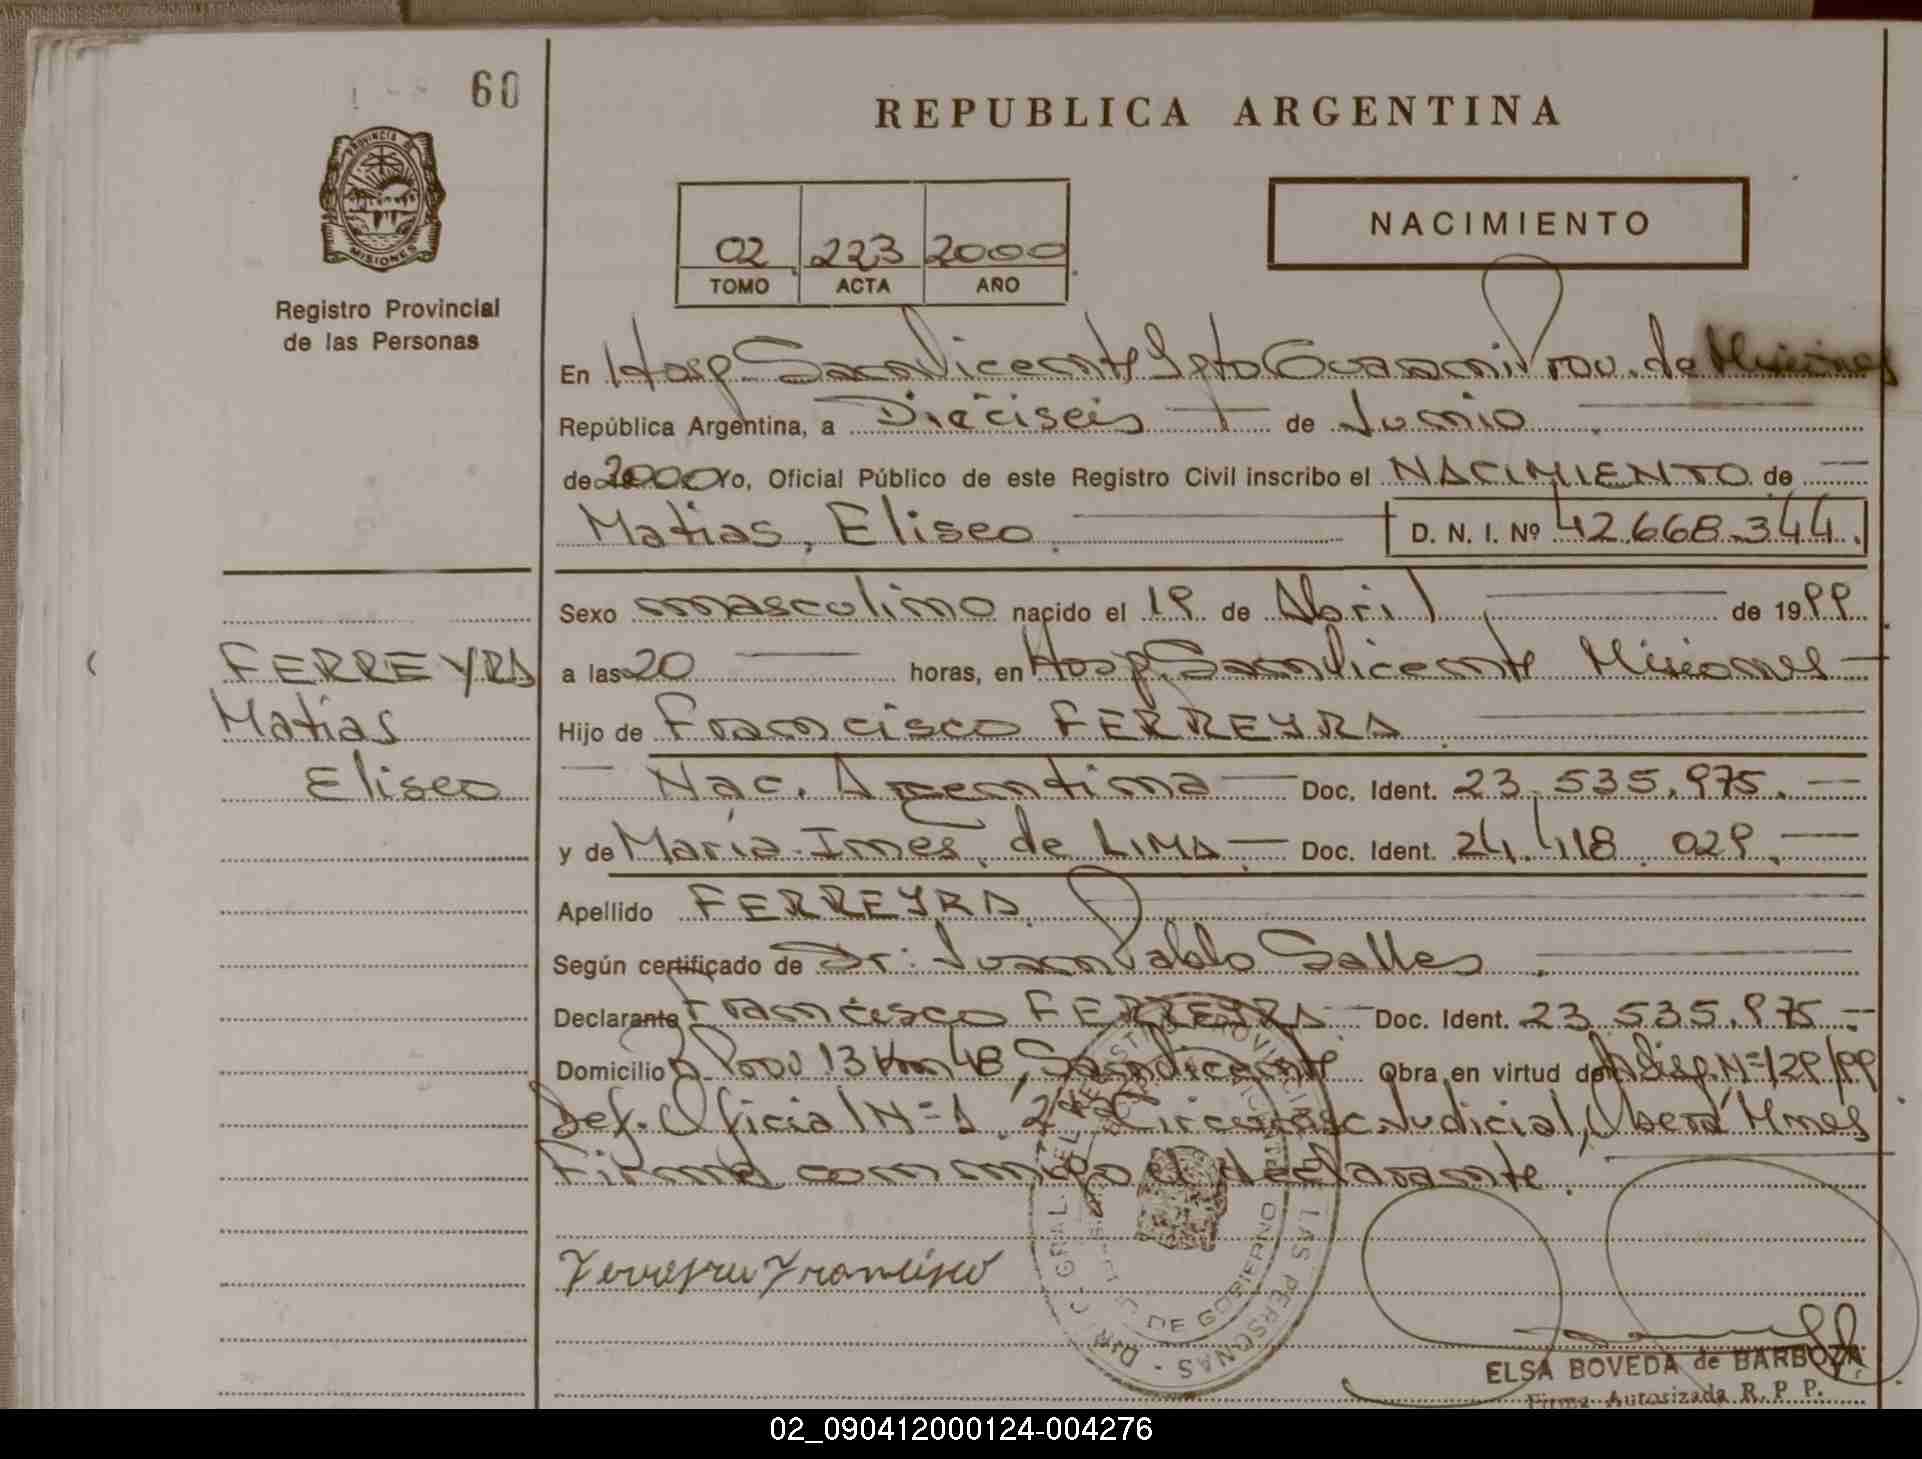 60
REPUBLICA ARGENTINA
PROVINCIA DE
MISIONES
Registro Provincial
de las Personas
02 223 2000
TOMO ACTA AÑO
NACIMIENTO
En Hosp. San Vicente Dpto Guaraní Prov. de Misiones
República Argentina, a Dieciseis de Junio
de 2000 Yo, Oficial Público de este Registro Civil inscribo el NACIMIENTO de
Matias, Eliseo. D. N. I. Nº 42.668.344.
Sexo masculino nacido el 19 de Abril de 1999
FERREYRA
Matias
Eliseo
a las 20 horas, en Hosp. San Vicente Misiones
Hijo de Francisco FERREYRA
Nac. Argentina Doc. Ident. 23.535.975.
y de María Ines, de LIMA Doc. Ident. 24.418.029.
Apellido FERREYRA
Según certificado de Dr: Juan Pablo Salles
Declarante Francisco FERREYRA Doc. Ident. 23.535.975
Domicilio Prov 13 Km 48, San Vicente Obra en virtud de Disp. N=129/99
Def. Oficial N=1 2da Circunsc. Judicial, Oberá Mnes
Firma conmigo el declarante.
Ferreyra Francisco
LAS PERSONAS
DE GOBIERNO
ELSA BOVEDA de BARBOZA
Firma Autorizada R. P. P.
02_090412000124-004276